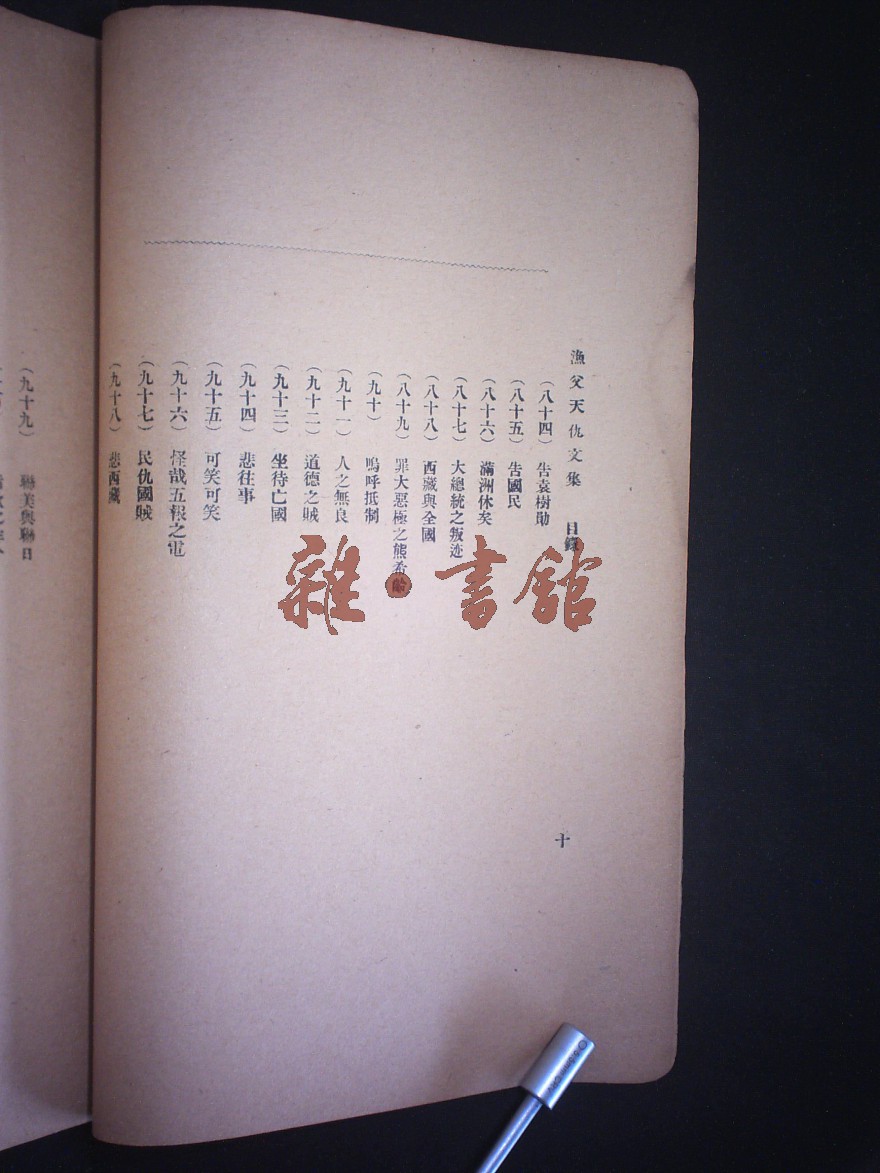 漁父天仇文集　目錄
（八十四）　告袁樹勛
（八十五）　告國民
（八十六）　滿洲休矣
（八十七）　大總統之叛迹
（八十八）　西藏與全國
（八十九）　罪大惡極之熊希齡
（九十）　嗚呼抵制
（九十一）　人之無良
（九十二）　道德之賊
（九十三）　坐待亡國
（九十四）　悲往事
（九十五）　可笑可笑
（九十六）　怪哉五報之電
（九十七）　民仇國賊
（九十八）　悲西藏
十
（九十九）　聯美與聯日
雜・書館